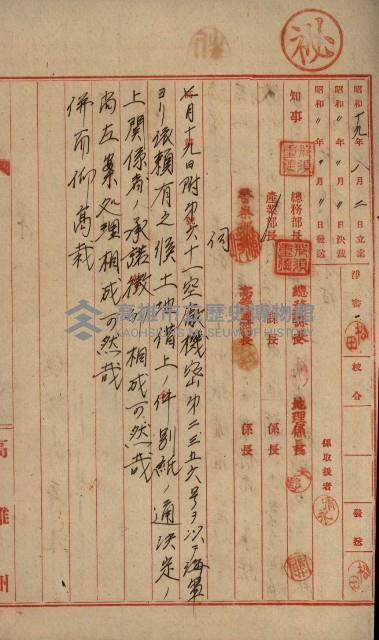 秘
昭和十九年八月二日立案
昭和〃年〃月〃日決裁
昭和〃年〃月〃日發送
淨書
校合
發送
係取扱者
知事
總務部長
總務課長
地理係長
產業部長
課長
係長
係長
伺
七月十九日附第六十一空廠機密第二三五六号ヲ以テ海軍
ヨリ依頼有之候土地借上ノ件別紙ノ通決定ノ
上関係者ノ承諾徴 相成可然哉
尚左案処理相成可然哉
併而仰高裁
高雄市立歷史博物館
KAOHSIUNG MUSEUM OF HISTORY
高雄州